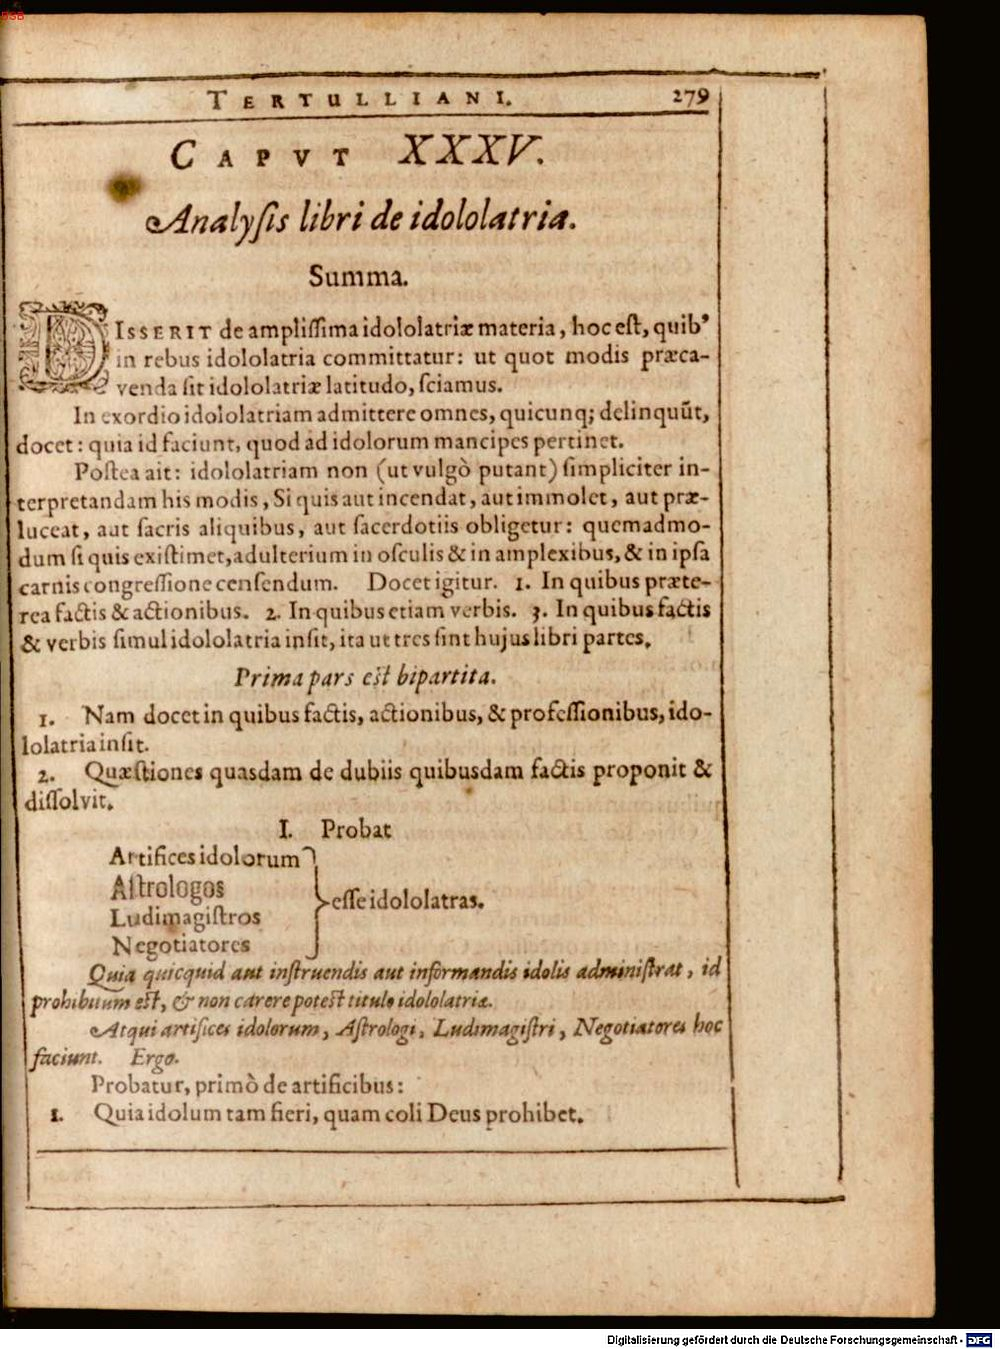 BSB
TERTULLIANI. 279
CAPVT XXXV.
Analyſis libri de idololatria.
Summa.
DISSERIT de ampliſſima idololatriæ materia, hoc eſt, quib⁹
in rebus idololatria committatur: ut quot modis præca-
venda ſit idololatriæ latitudo, ſciamus.
In exordio idololatriam admittere omnes, quicunq; delinquũt,
docet: quia id faciunt, quod ad idolorum mancipes pertinet.
Poſtea ait: idololatriam non (ut vulgò putant) ſimpliciter in-
terpretandam his modis, Si quis aut incendat, aut immolet, aut præ-
luceat, aut ſacris aliquibus, aut ſacerdotiis obligetur: quemadmo-
dum ſi quis exiſtimet, adulterium in oſculis & in amplexibus, & in ipſa
carnis congreſſione cenſendum. Docet igitur. 1. In quibus præte-
rea factis & actionibus. 2. In quibus etiam verbis. 3. In quibus factis
& verbis ſimul idololatria inſit, ita ut tres ſint hujus libri partes.
Prima pars eſt bipartita.
1. Nam docet in quibus factis, actionibus, & profeſſionibus, ido-
lolatria inſit.
2. Quæſtiones quasdam de dubiis quibusdam factis proponit &
diſſolvit.
I. Probat
Artifices idolorum
Aſtrologos
eſſe idololatras.
Ludimagiſtros
Negotiatores
Quia quicquid aut inſtruendis aut informandis idolis adminiſtrat, id
prohibitum eſt, & non carere poteſt titulo idololatriæ.
Atqui artifices idolorum, Aſtrologi, Ludimagiſtri, Negotiatores hoc
faciunt. Ergo.
Probatur, primò de artificibus:
1. Quia idolum tam fieri, quam coli Deus prohibet.
Digitalisierung gefördert durch die Deutsche Forschungsgemeinschaft - DFG